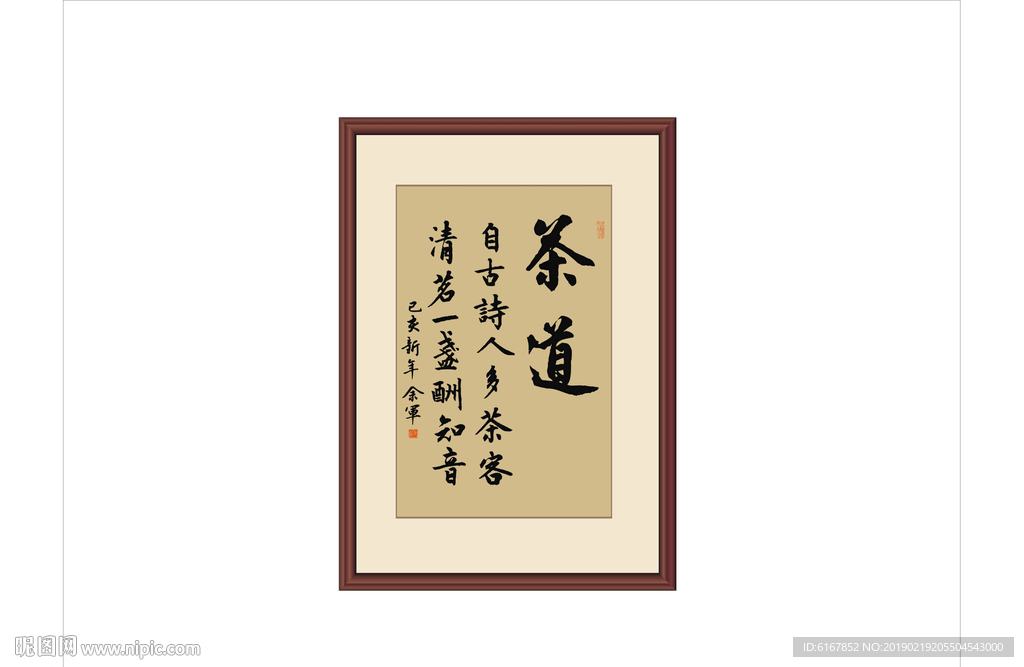 茶道
自古詩人多茶客
清茗一盞酬知音
己亥新年 余軍
昵图网 www.nipic.com
ID:6167852 NO:20190219205504543000